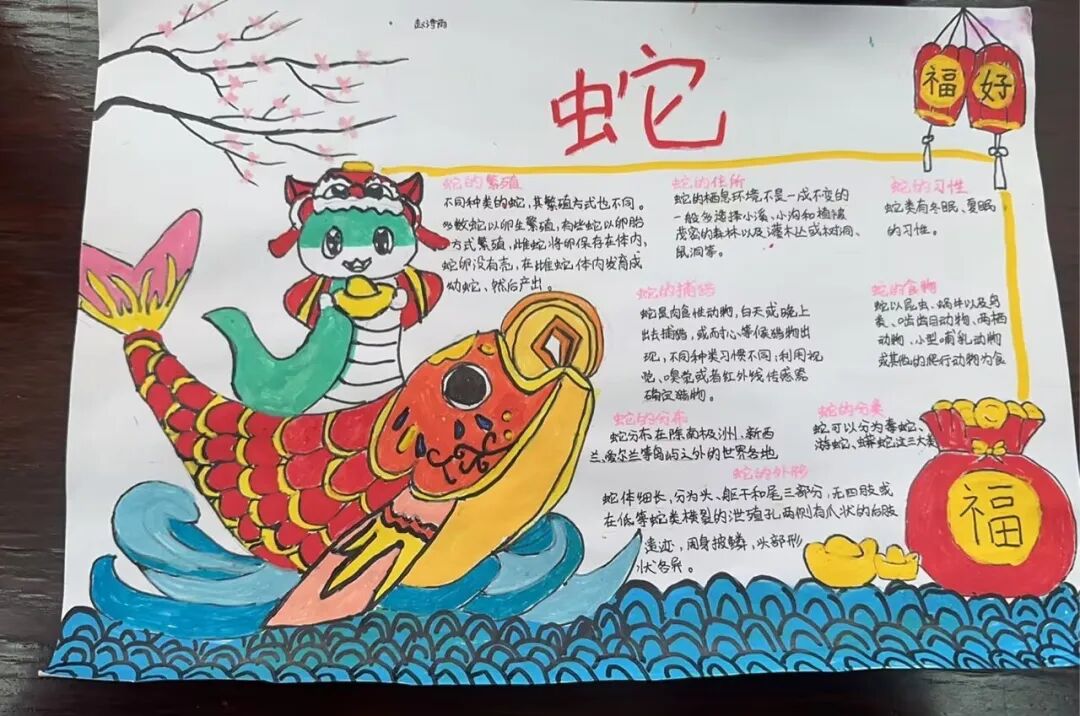 蛇
福
好
蛇的繁殖
不同种类的蛇,其繁殖方式也不同。
多数蛇以卵生繁殖,有些蛇以卵胎
方式繁殖,雌蛇将卵保存在体内,
蛇卵没有壳,在雌蛇体内发育成
幼蛇、然后产出。
蛇的住所
蛇的栖息环境不是一成不变的
一般多选择小溪、小沟和植被
茂密的森林以及灌木丛或树洞、
鼠洞等。
蛇的习性
蛇类有冬眠、夏眠
的习性。
蛇的捕猎
蛇是肉食性动物,白天或晚上
出去捕猎,或耐心等候猎物出
现,不同种类习惯不同;利用视
觉、嗅觉或者红外线传感器
确定猎物。
蛇的食物
蛇以昆虫、蜗牛以及鸟
类、啮齿目动物、两栖
动物、小型哺乳动物
或其他的爬行动物为食
蛇的分布
蛇分布在除南极洲、新西
兰、爱尔兰等岛屿之外的世界各地
蛇的分类
蛇可以分为毒蛇、
游蛇、蟒蛇这三大类
蛇的外形
蛇体细长,分为头、躯干和尾三部分,无四肢或
在低等蛇类横裂的泄殖孔两侧有爪状的后肢
遗迹,周身披鳞,头部形
状各异。
福